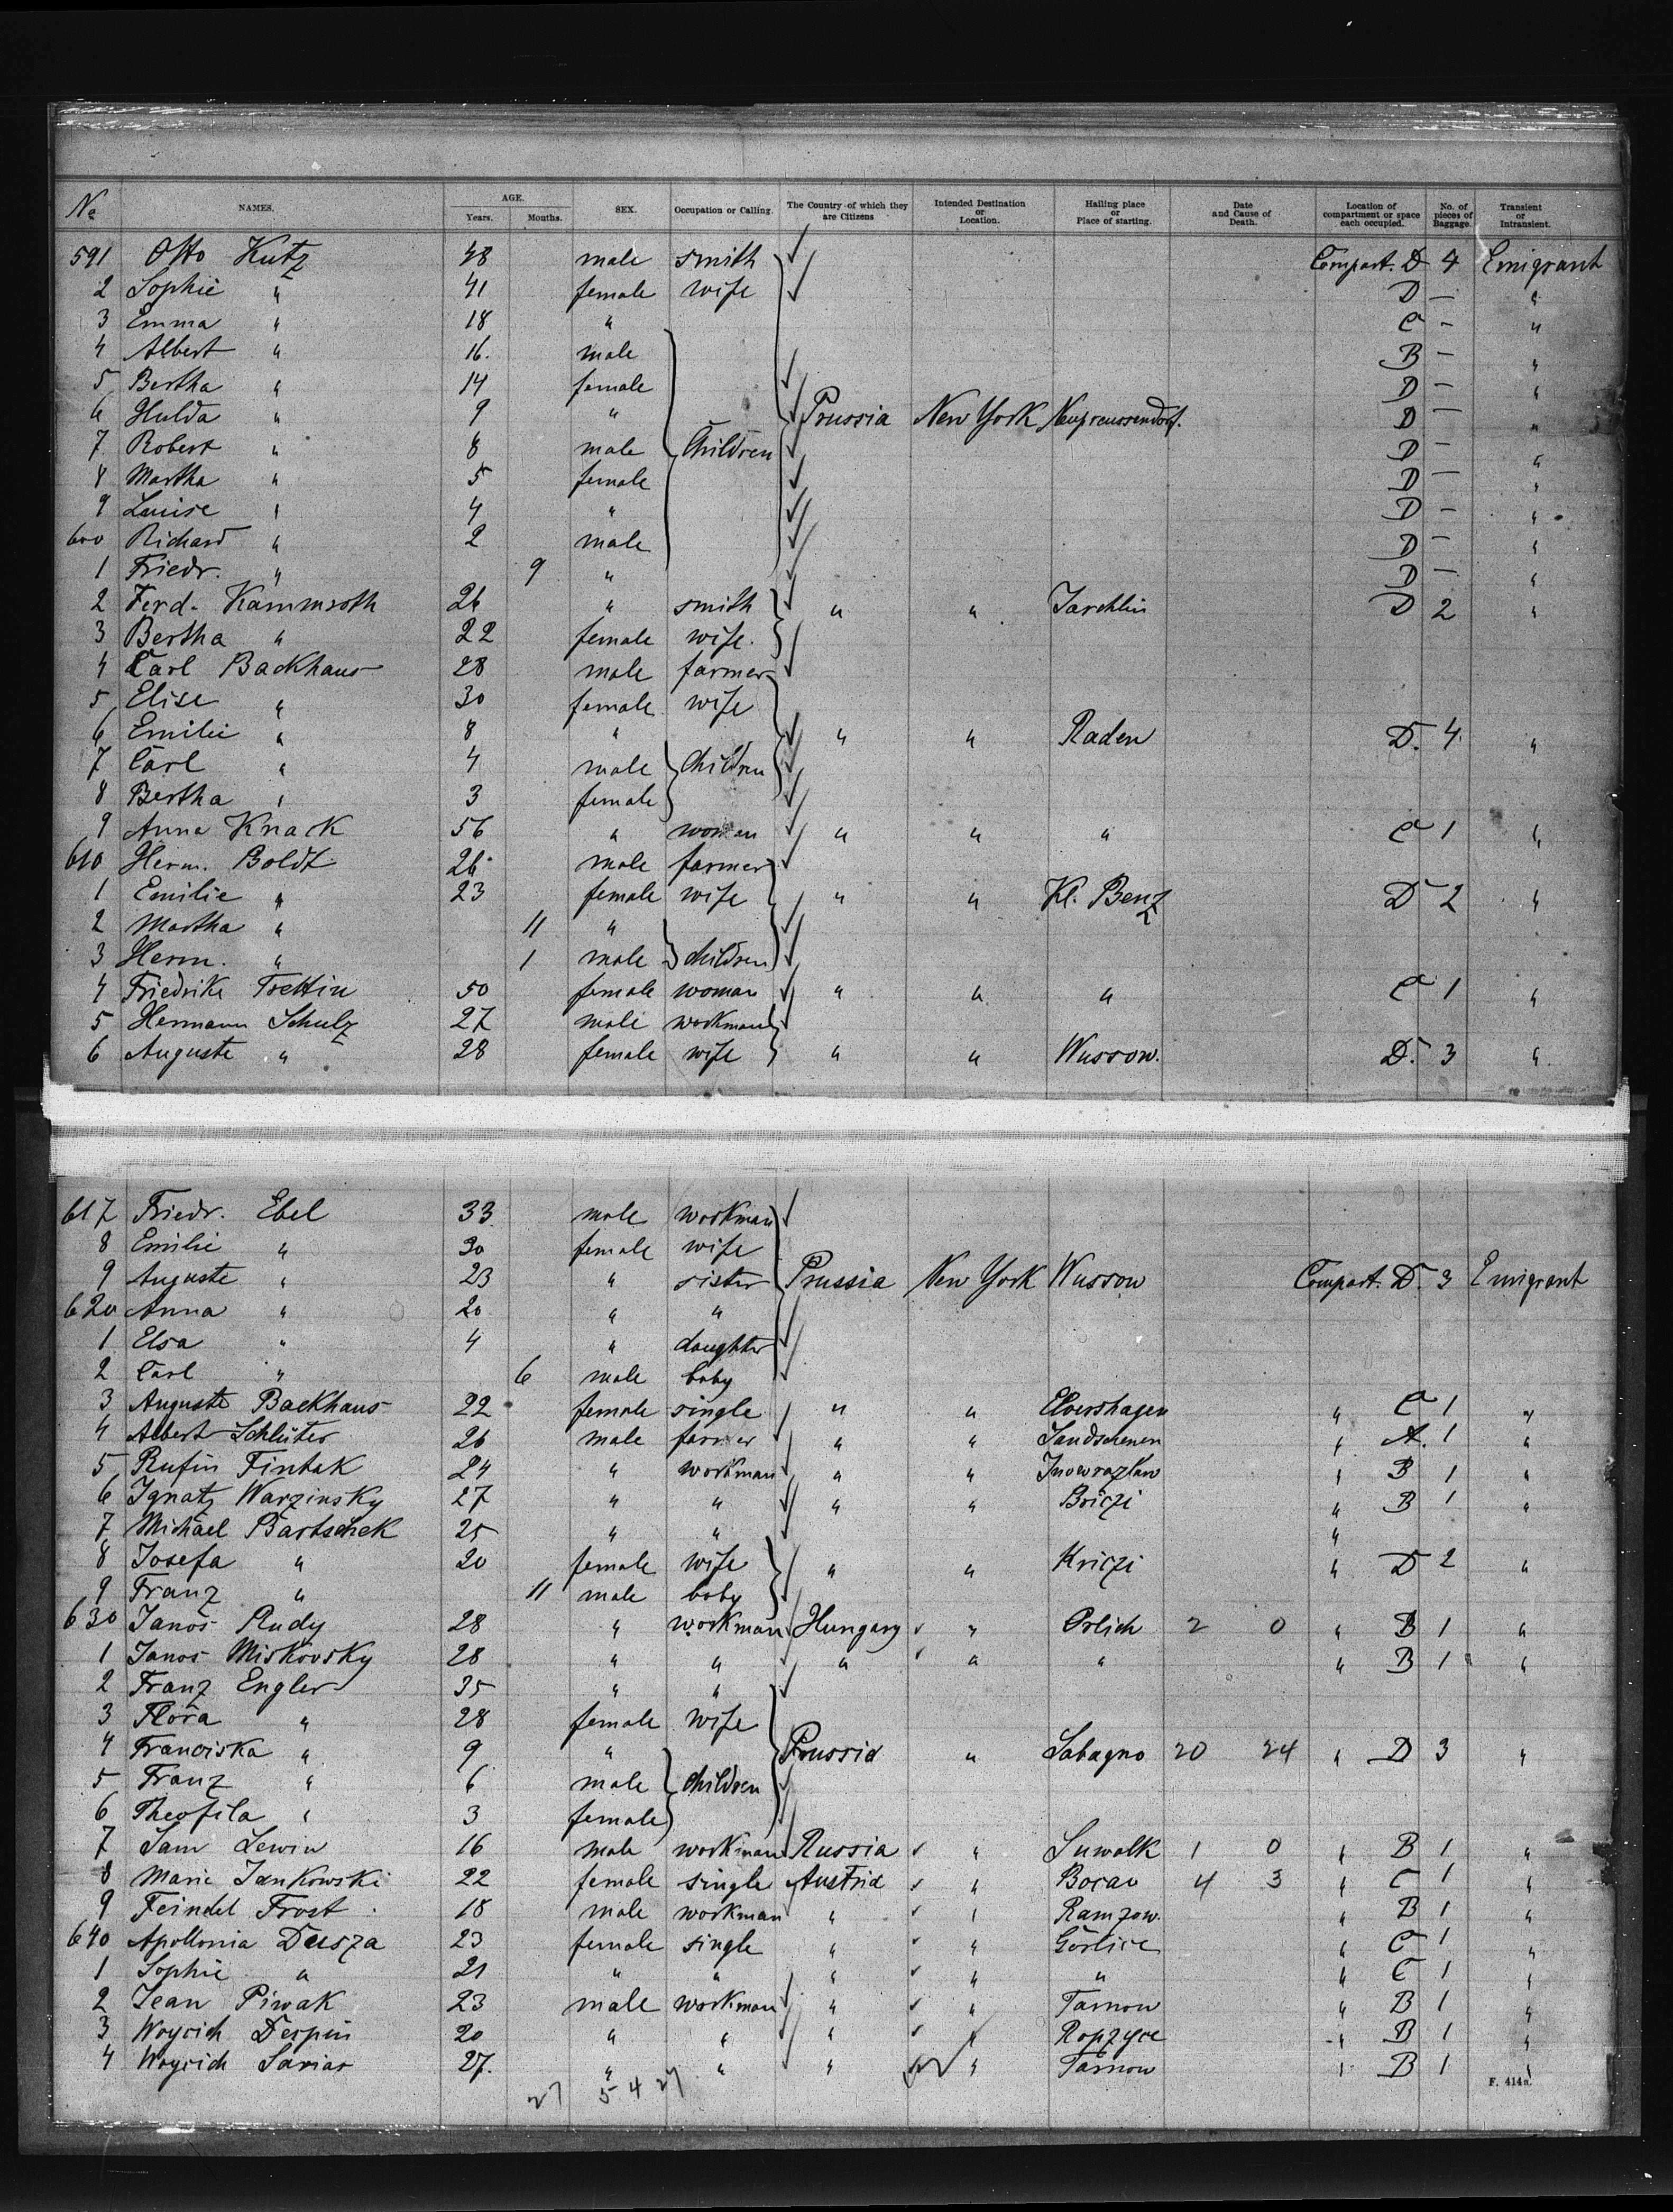 No. NAMES. AGE. Years. Months. SEX. Occupation or Calling. The Country of which they are Citizens Intended Destination or Location. Hailing place or Place of starting. Date and Cause of Death. Location of compartment or space each occupied. No. of pieces of Baggage. Transient or Intransient.
591 Otto Kutz 48 male smith Compart. D 4 Emigrant
2 Sophie " 41 female wife D — "
3 Emma " 18 " C - "
4 Albert " 16. male B — "
5 Bertha " 14 female D — "
6 Hulda " 9 " Prussia New York Neupreussendorf. D — "
7 Robert " 8 male Children D — "
8 Martha " 5 female D — "
9 Louise " 4 " D — "
600 Richard " 2 male D — "
1 Friedr. " 9 " D — "
2 Ferd. Kammroth 26 " smith " " Jarchlin D 2 "
3 Bertha " 22 female wife.
4 Carl Backhaus 28 male farmer
5 Elise " 30 female wife
6 Emilie " 8 " " " Raden D. 4 "
7 Carl " 4 male Children
8 Bertha " 3 female
9 Anna Knack 56 " woman " " " C 1 "
610 Herm. Boldt 26 male farmer
1 Emilie " 23 female wife " " Kl. Benz D 2 "
2 Martha " 11 "
3 Herm. " 1 male children
4 Friedrike Trettin 50 female woman " " " C 1 "
5 Hermann Schulz 27 male workman
6 Auguste " 28 female wife " " Wussow. D. 3 "
617 Friedr. Ebel 33 male workman
8 Emilie " 30 female wife
9 Auguste " 23 " sister Prussia New York Wussow Compart. D. 3 Emigrant
620 Anna " 20 " "
1 Elsa " 4 " daughter
2 Carl " 6 male baby
3 Auguste Backhaus 22 female single " " Elvershagen " C 1 "
4 Albert Schlüter 26 male farmer " " " A. 1 "
5 Rufin Fintak 24 " workman " " Inowrazlaw " B 1 "
6 Ignatz Warzinsky 27 " " " " Briczi " B 1 "
7 Michael Bartschek 25 " " "
8 Josefa " 20 female wife " " Kriczi " D 2 "
9 Franz " 11 male baby
630 Janos Rudy 28 " workman Hungary " Orlich 2 0 " B 1 "
1 Janos Miskovsky 28 " " " " " " B 1 "
2 Franz Engler 35 " "
3 Flora " 28 female wife
4 Franciska " 9 " Prussia " Labagno 20 24 " D 3 "
5 Franz " 6 male children
6 Theofila " 3 female
7 Sam Lewin 16 male workman Russia " Suwalk 1 0 " B 1 "
8 Marie Jankowski 22 female single Austria " Borau 4 3 " C 1 "
9 Feindel Frost 18 male workman " " Ramzow. " B 1 "
640 Apollonia Dusza 23 female single " " Gorlice " C 1 "
1 Sophie " 21 " " " " " " C 1 "
2 Jean Piwak 23 male workman " " Tarnow " B 1 "
3 Woycich Despin 20 " " " " Ropzyce " B 1 "
4 Woycich Sarias 27. " " " " Tarnow " B 1 "
27 5 4 27
F. 414a.